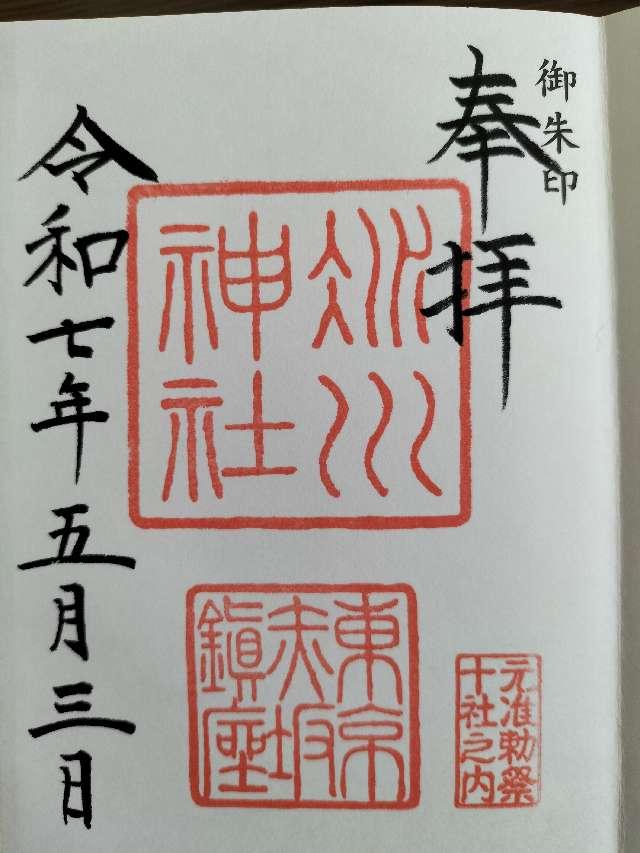 御朱印
奉拝
氷川
神社
東京
赤坂
鎮座
元准勅祭
十社之内
令和七年五月三日